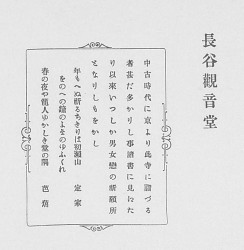 長谷觀音堂
中古時代に京より此寺に詣づる
者甚だ多かりし事諸書に見にた
り以来いつしか男女戀の祈願所
となりしもをかし
年もへぬ祈るちきりは初瀬山
定家
をのへの鐘のよそのゆふくれ
春の夜や籠人ゆかしき堂の隅
芭蕉